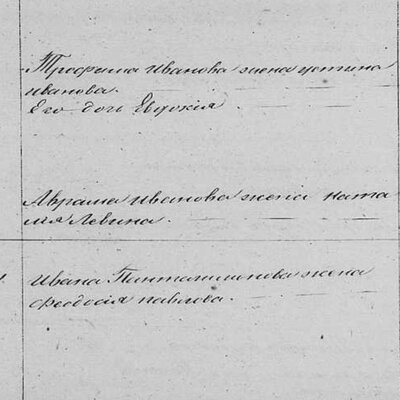 Трофима Иванова жена устина
иванова.
Его дочь Евдокія.
Аврама Иванова жена ната
лия Левина.
Ивана Панталимонова жена
феодосія павлова.